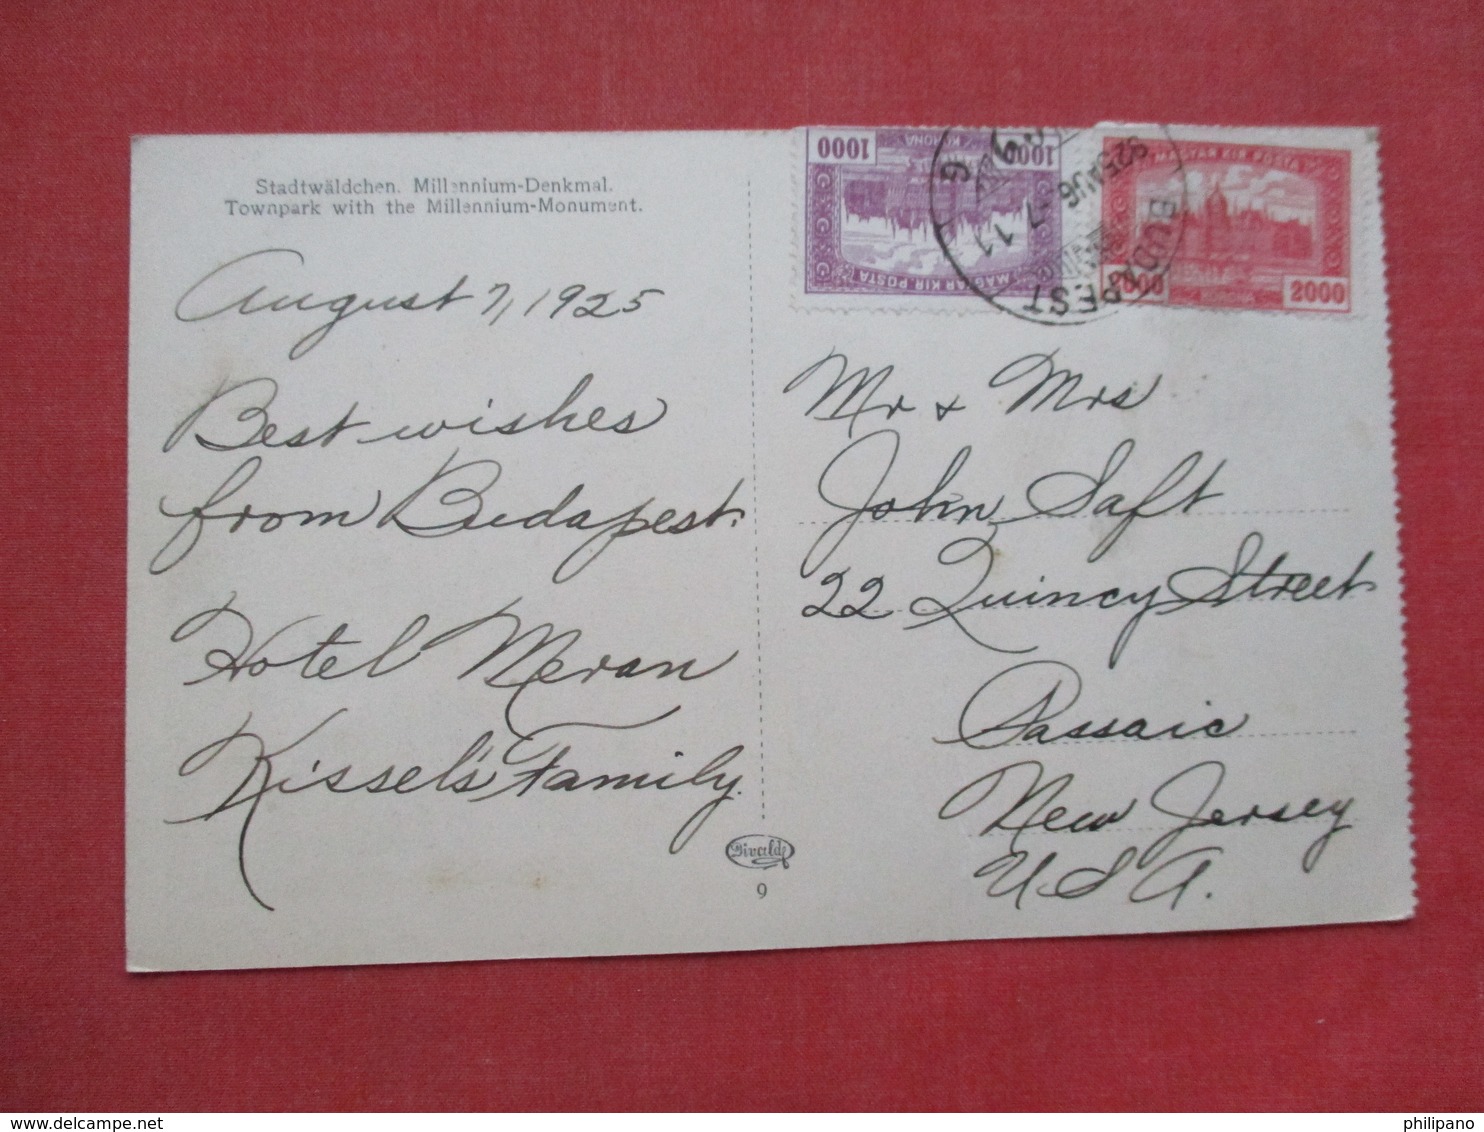 Stadtwäldchen. Millennium-Denkmal.
Townpark with the Millennium-Monument.
August 7, 1925
Best wishes
from Budapest.
Hotel Meran
Kissel's Family.
1000
1000
KORONA
MAGYAR KIR. POSTA
BUDAPEST
925 AUG -7 11
MAGYAR KIR. POSTA
2000
2000
KORONA
Mr & Mrs
John Saft
22 Quincy Street
Passaic
New Jersey
U.S.A.
Divald
9
philipano